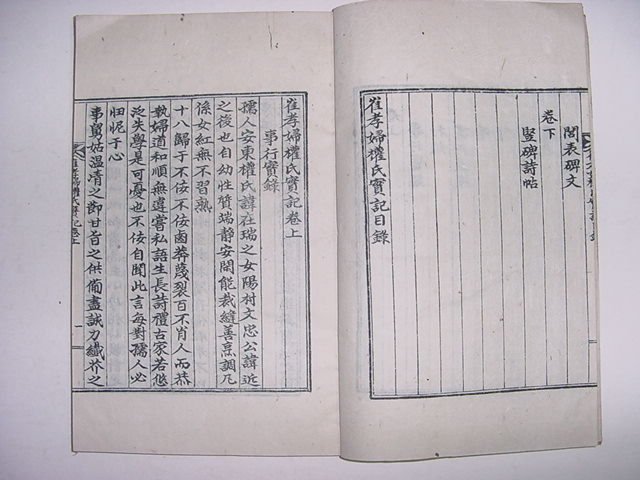 閭表碑文
卷下
竪碑詩帖
崔孝婦權氏實記目錄
崔孝婦權氏實記卷上
事行實錄
孺人安東權氏諱在瑞之女陽村文忠公諱近
之後也自幼性質端靜安閑能裁縫善烹調凡
係女紅無不習熟
十八歸于不佞不佞鹵莽蔑裂百不肖人而恭
執婦道和順無違嘗私語生長詩禮古家若
泛失學是可憂也不佞自聞此言每對孺人必
忸怩于心
事舅姑溫凊之節甘旨之供備盡誠力纖芥之
崔孝婦權氏實記卷上
一